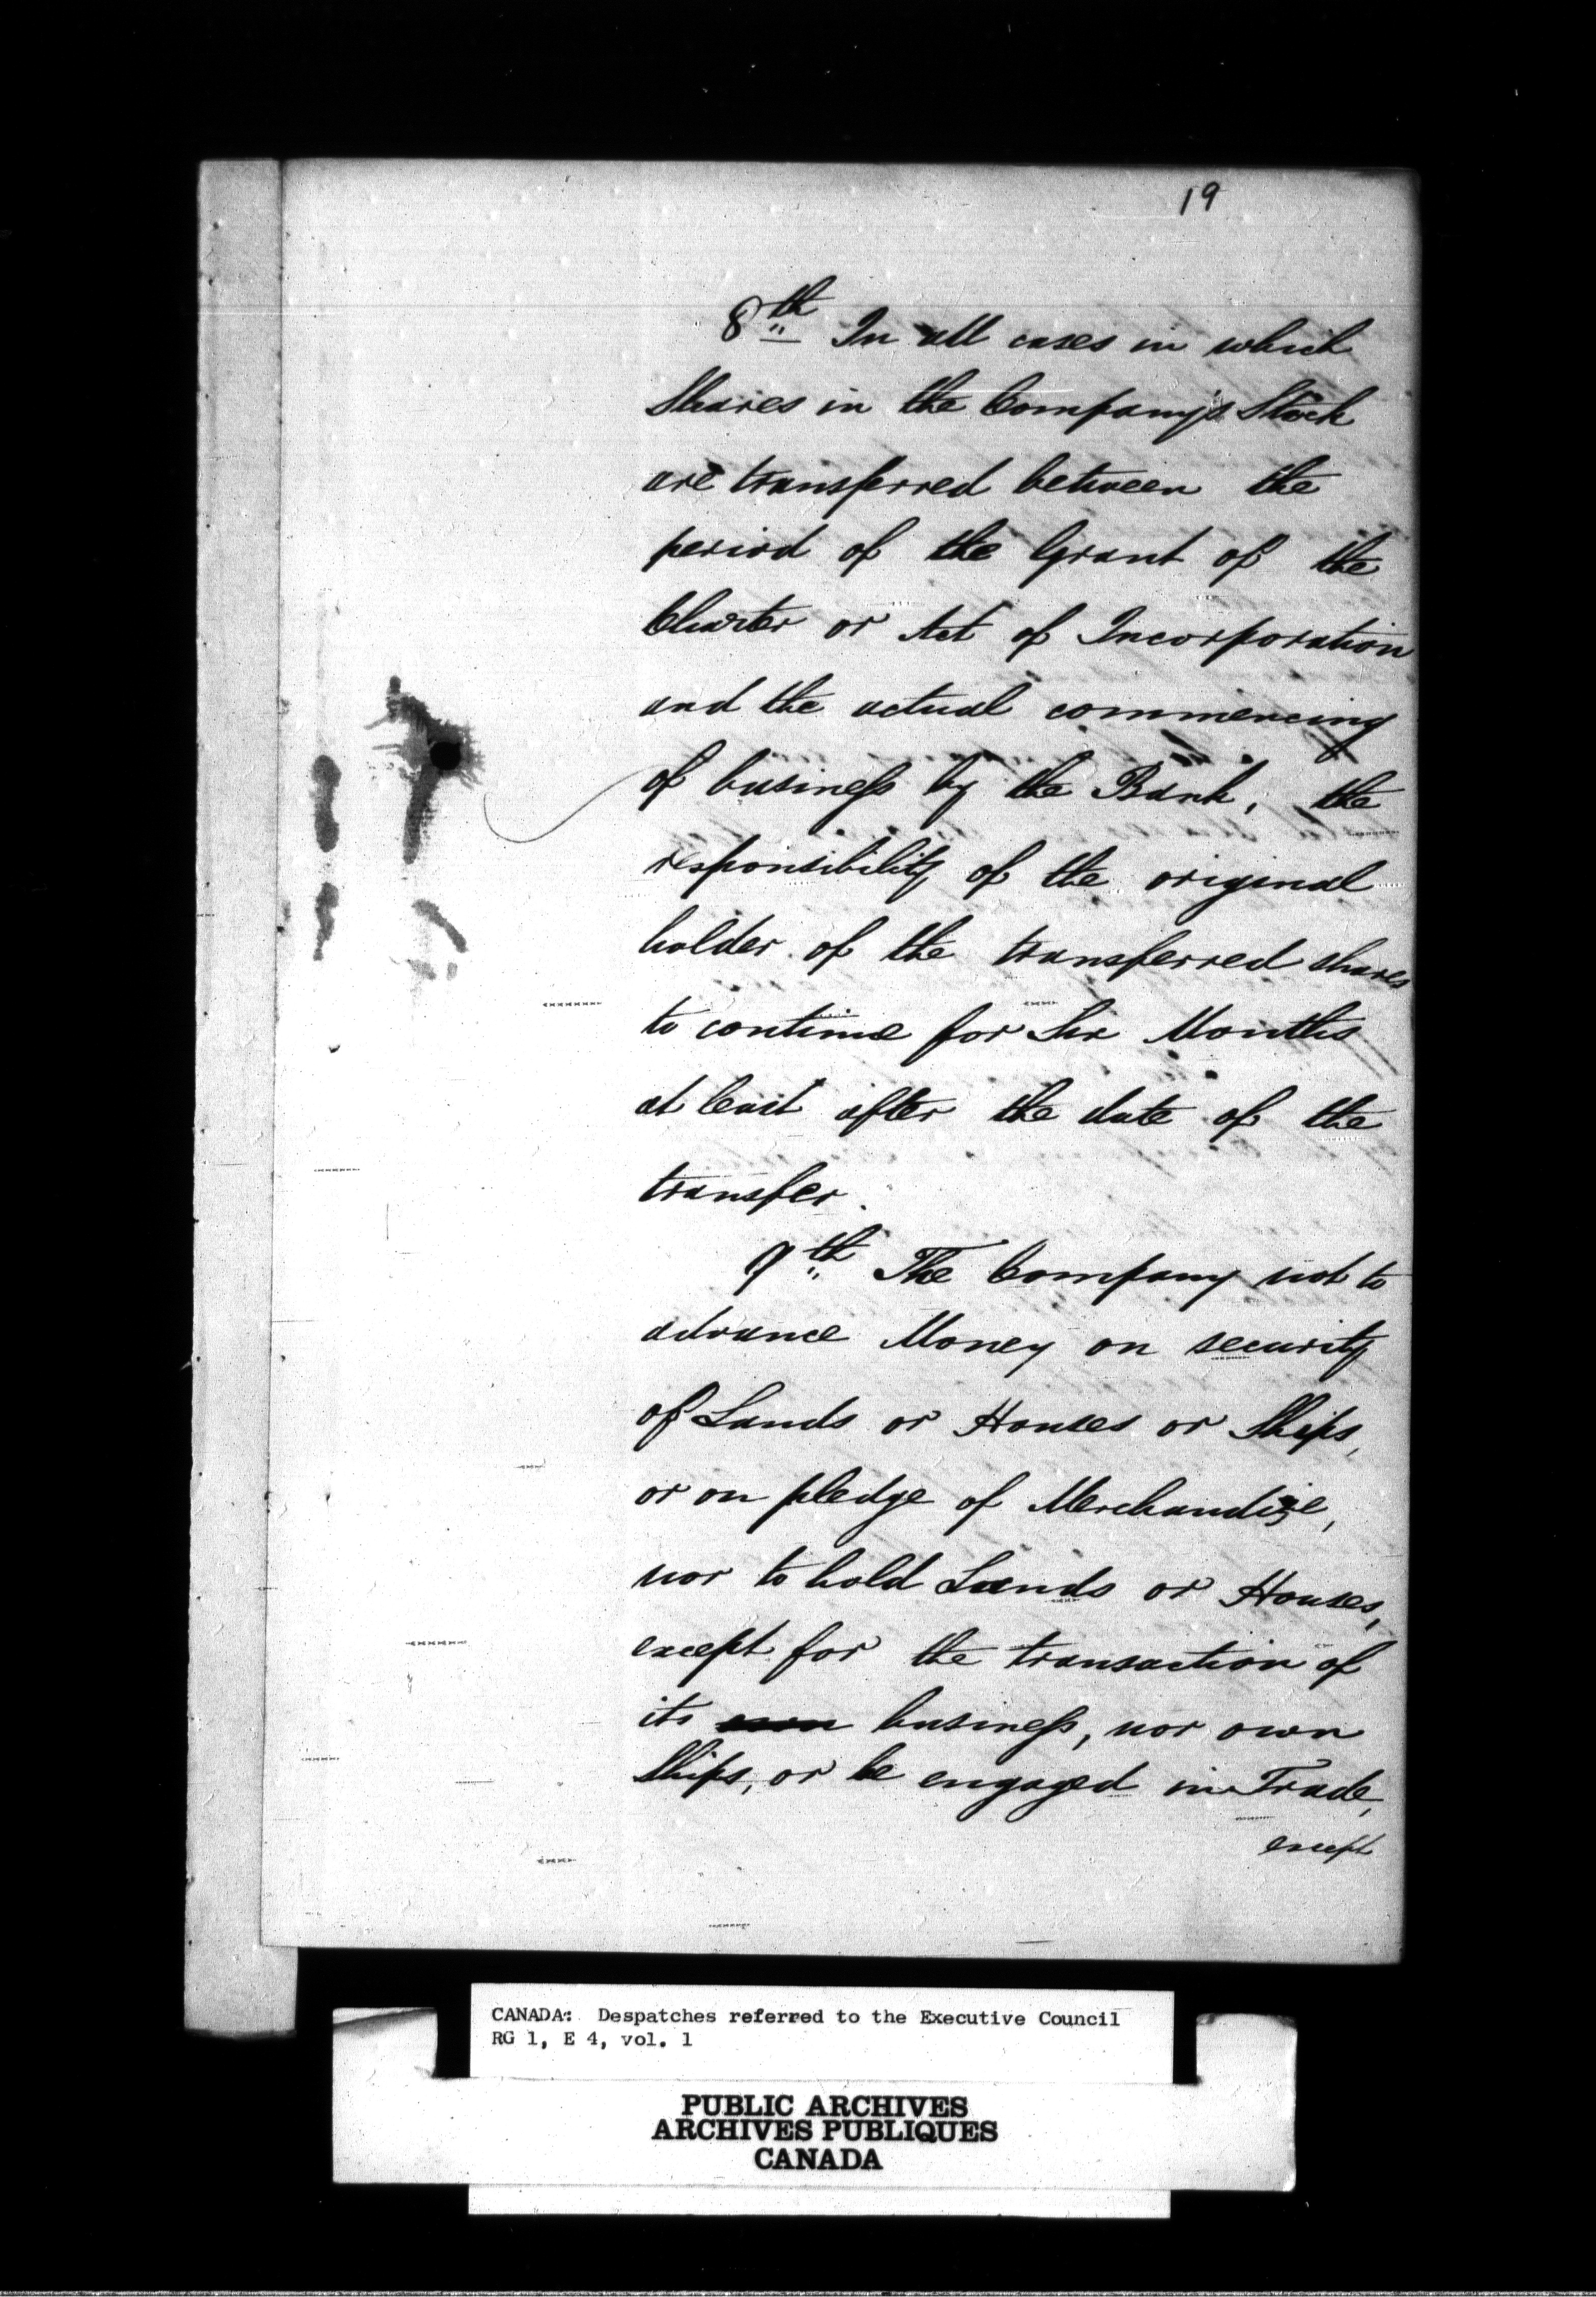 19
8th In all cases in which
Shares in the Company's Stock
are transferred between the
period of the Grant of the
Charter or Act of Incorporation
and the actual commencing
of business by the Bank, the
responsibility of the original
holder of the transferred shares
to continue for Six Months
at least after the date of the
transfer.
9th The Company not to
advance Money on security
of Lands or Houses or Ships,
or on pledge of Merchandize,
nor to hold Lands or Houses,
except for the transaction of
its business, nor own
Ships, or be engaged in Trade,
except
CANADA: Despatches referred to the Executive Council
RG 1, E 4, vol. 1
PUBLIC ARCHIVES
ARCHIVES PUBLIQUES
CANADA